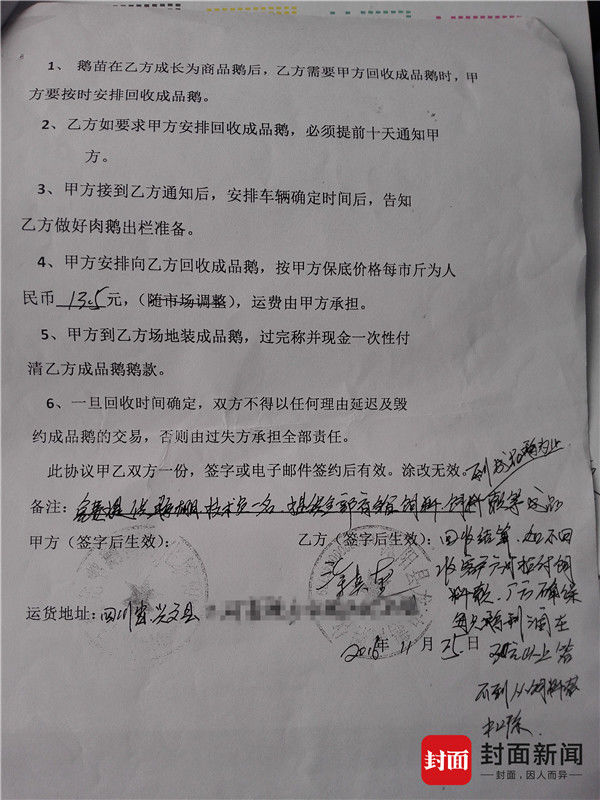 1、 鹅苗在乙方成长为商品鹅后，乙方需要甲方回收成品鹅时，甲
方要按时安排回收成品鹅。
2、乙方如要求甲方安排回收成品鹅，必须提前十天通知甲
方。
3、甲方接到乙方通知后，安排车辆确定时间后，告知
乙方做好肉鹅出栏准备。
4、甲方安排向乙方回收成品鹅，按甲方保底价格每市斤为人
民币 13.5 元，（随市场调整），运费由甲方承担。
5、甲方到乙方场地装成品鹅，过完称并现金一次性付
清乙方成品鹅鹅款。
6、一旦回收时间确定，双方不得以任何理由延迟及毁
约成品鹅的交易，否则由过失方承担全部责任。
此协议甲乙双方一份，签字或电子邮件签约后有效。涂改无效。
备注： 技术员一名 提供全部 饲料 饲料款等成品
甲方（签字后生效）：
乙方（签字后生效）：回收结算，如不回
收 方不付饲
料款，厂方确保
每只鹅利润在
元以上，答
不到从饲料款
中扣除.
运货地址：四川省兴文县
2016年11月25日
封面
封面新闻
封面，因人而异